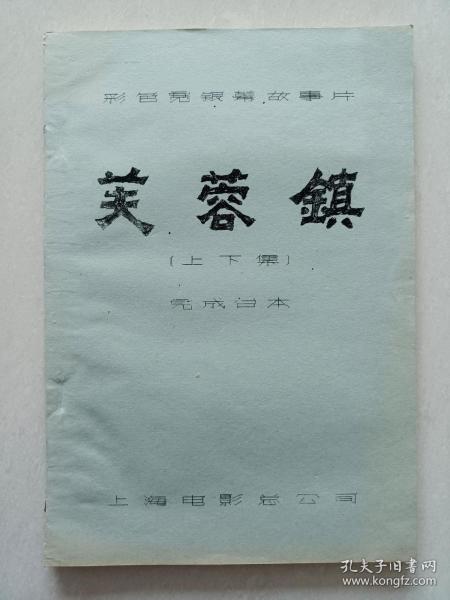 彩色宽银幕故事片
芙蓉鎮
(上下集)
完成台本
上海电影总公司
孔夫子旧书网
www.kongfz.com